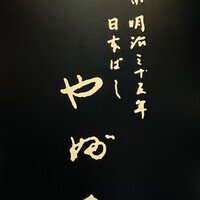 明治三十五年
日本ばし
やぶ